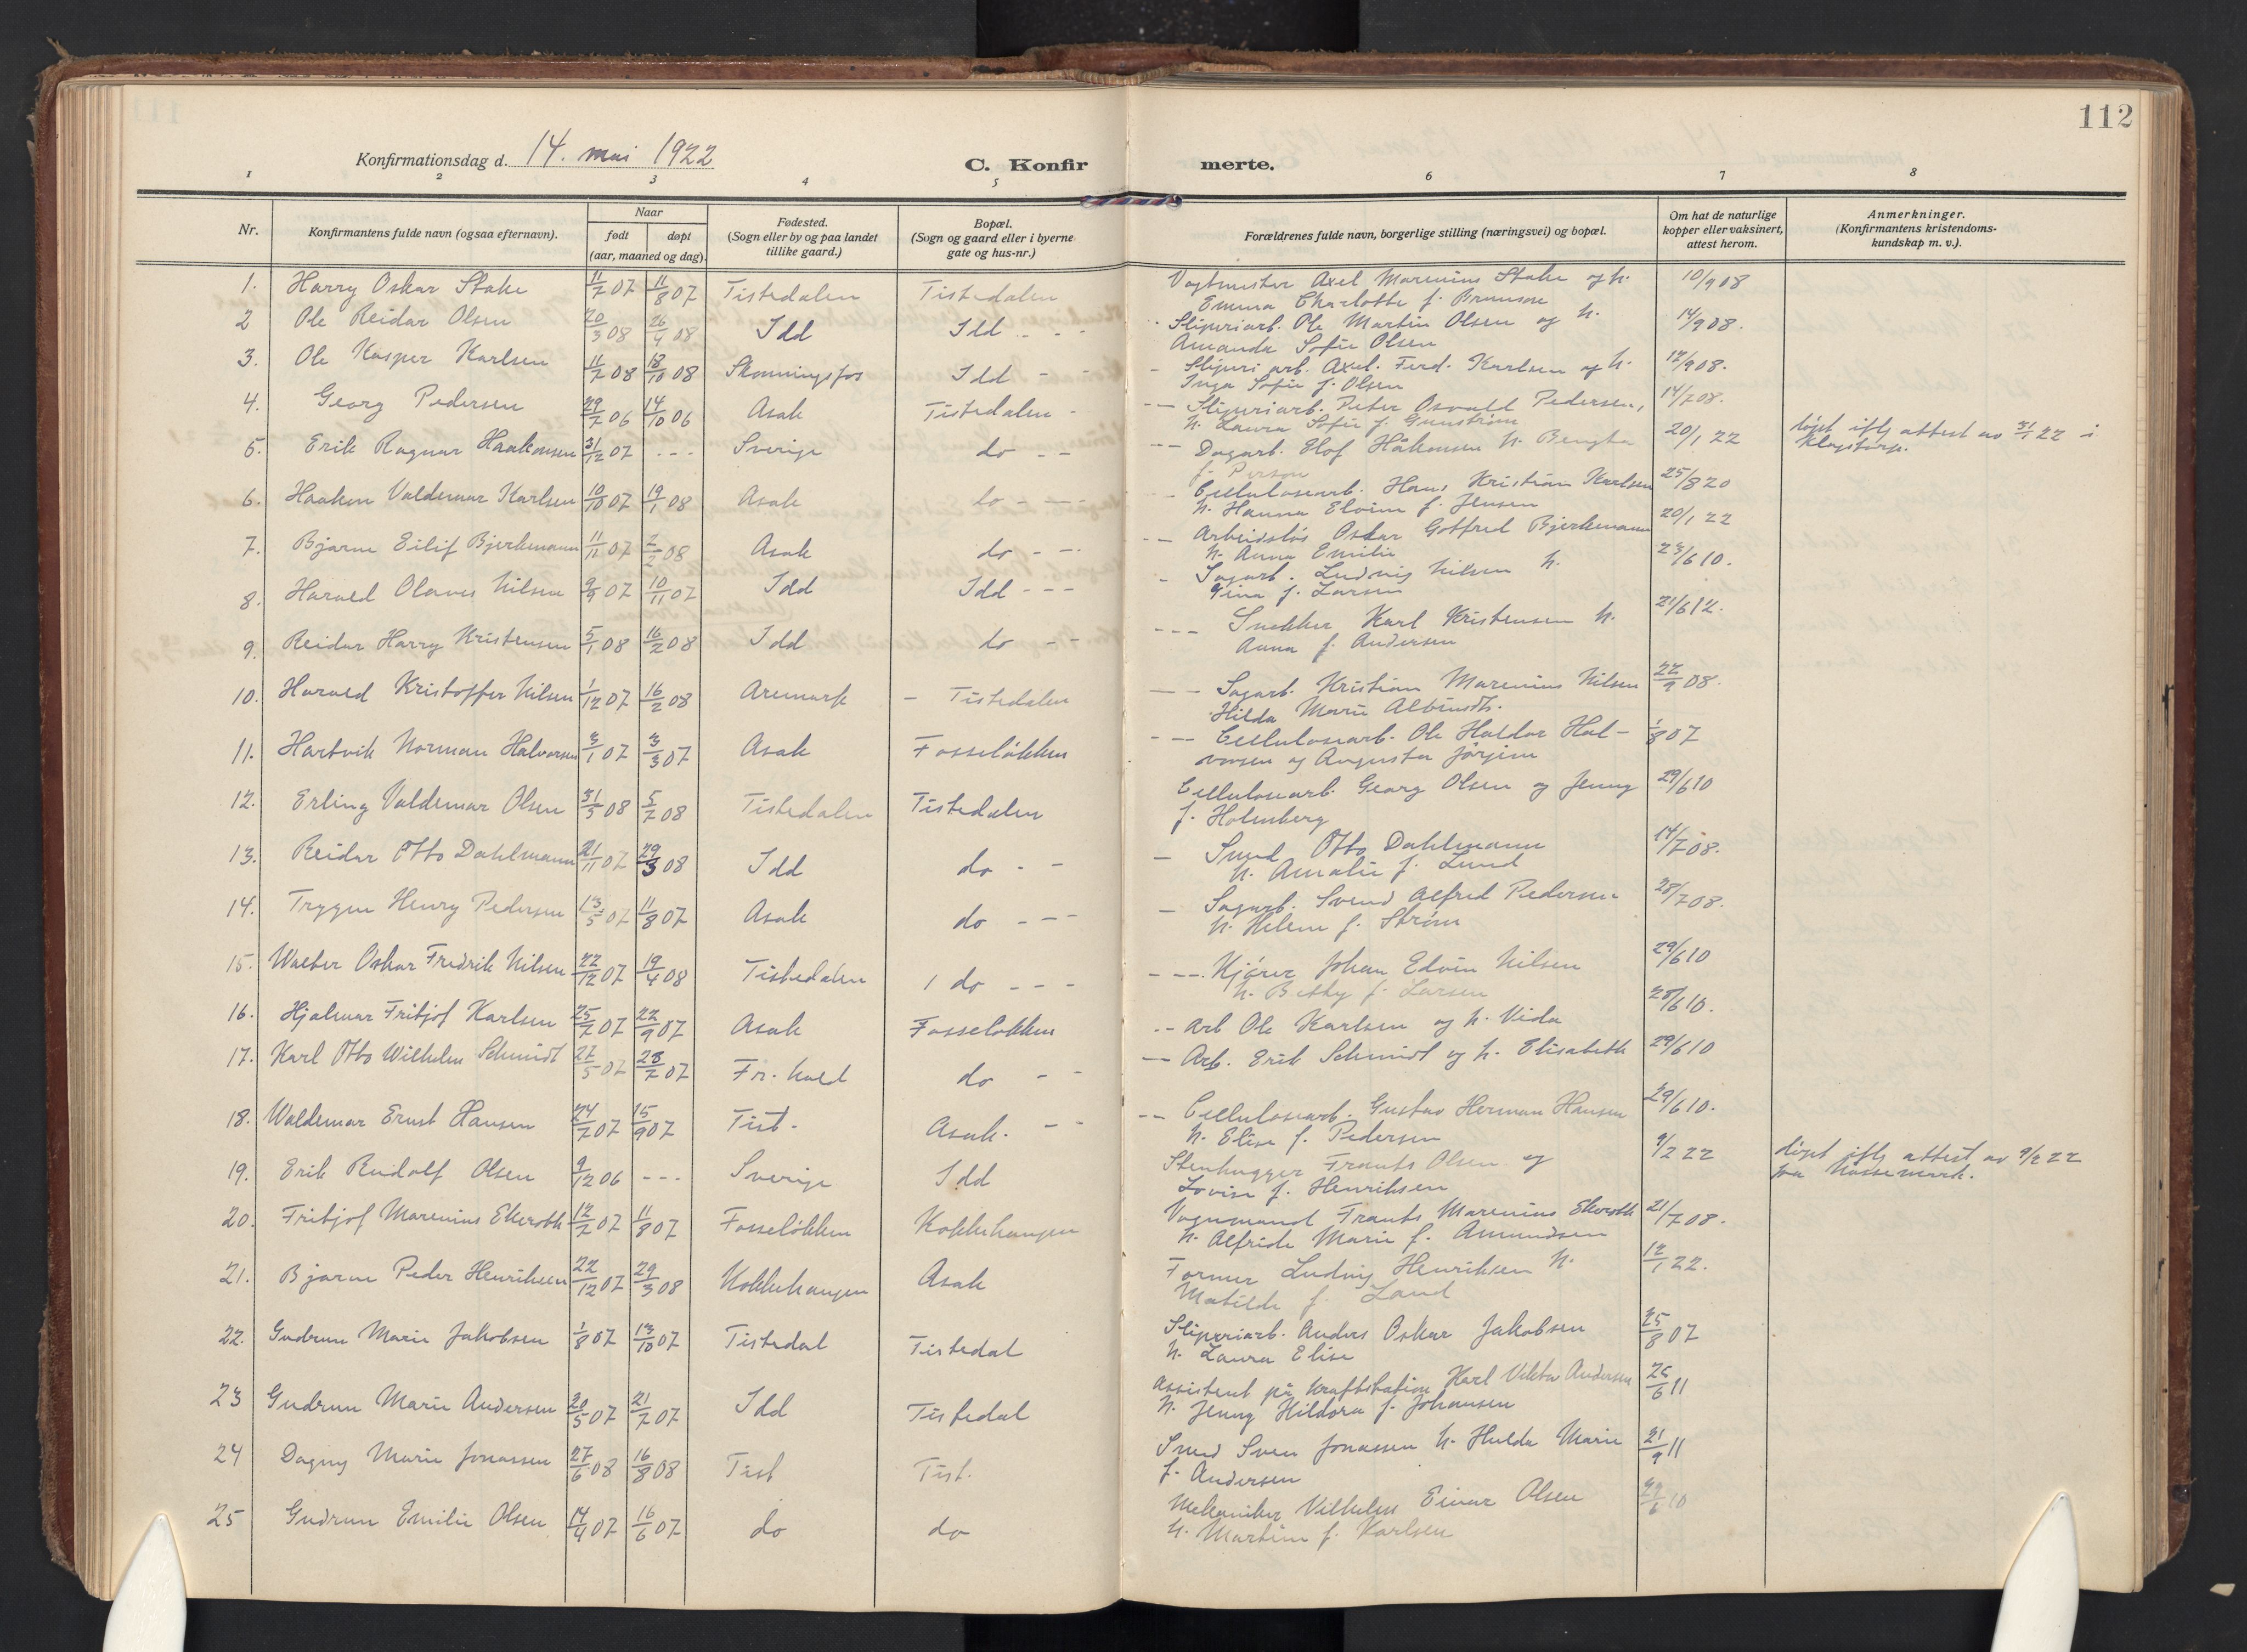 112
Konfirmationsdag d. 14. mai 1922
C. Konfirmerte.
1 2 3 4 5 6 7 8
Nr.
Konfirmantens fulde navn (ogsaa efternavn).
Naar
født døpt
(aar, maaned og dag).
Fødested.
(Sogn eller by og paa landet
tillike gaard.)
Bopæl.
(Sogn og gaard eller i byerne
gate og hus-nr.)
Forældrenes fulde navn, borgerlige stilling (næringsvei) og bopæl.
Om hat de naturlige
kopper eller vaksinert,
attest herom.
Anmerkninger.
(Konfirmantens kristendoms-
kundskap m. v.).
1. Harry Oskar Stake 11/7 07 11/8 07 Tistedalen Tistedalen Vagtmester Axel Marenius Stake og h. 10/9 08
Emma Charlotte f.
2 Ole Reidar Olsen 20/3 08 26/4 08 Idd Idd - - Sliperiarb. Ole Martin Olsen og h. 14/9 08.
Amanda Sofie Olsen
3. Ole Kasper Karlsen 11/7 08 18/10 08 Skonningsfos Idd - - Sliperiarb. Axel. Ferd. Karlsen og h. 12/9 08.
Inga Sofie f. Olsen
4. Georg Pedersen 29/7 06 14/10 06 Asak Tistedalen - -- Sliperiarb. Peter Osvald Pedersen, 14/7 08.
h. Laura Sofie f. Grunstrøm
5. Erik Ragnar Haakonsen 31/12 07 --- Sverige do -- --- Dagarb. Olof Håkonsen h. Bengta 20/1 22 døpt iflg attest av 31/1 22 i
f. Person
6. Haakon Valdemar Karlsen 10/10 07 19/1 08 Asak do - -- Cellulosearb. Hans Kristian Karlsen 25/8 20
h. Hanna Elvine f. Jensen
7. Bjarne Eilif Bjerkemann 11/11 07 2/2 08 Asak do - -- -- Arbeidsløs Oskar Gotfred Bjerkemann 20/1 22
h. Anna Emilie
8. Harald Olaves Nilsen 9/9 07 10/11 07 Idd Idd --- - Sagarb. Ludvig Nilsen h. 23/6 10.
Gina f. Larsen
9. Reidar Harry Kristensen 5/1 08 16/2 08 Idd do -- --- Snekker Karl Kristensen h. 21/6 12.
Anna f. Andersen
10. Harald Kristoffer Nilsen 1/12 07 16/2 08 Aremark - Tistedalen -- Sagarb. Kristian Marenius Nilsen 22/9 08.
Hilda Marie
11. Hartvik Norman Halvorsen 3/1 07 3/3 07 Asak Fosseløkken --- Cellulosearb. Ole Haldor Hal- 1/8 07
vorsen og Augusta Jørgine
12. Erling Valdemar Olsen 31/5 08 5/7 08 Tistedalen Tistedalen Cellulosearb. Georg Olsen og Jenny 29/6 10
f. Holmberg
13. Reidar Otto Dahlmann 21/11 07 29/3 08 Idd do - - - Smed Otto Dahlmann 14/7 08.
h. Amalie f. Lund
14. Trygve Henry Pedersen 13/5 07 11/8 07 Asak do --- - Sagarb. Svend Alfred Pedersen 28/7 08.
h. Helene f. Strøm
15. Walter Oskar Fredrik Nilsen 22/12 07 19/4 08 Tistedalen do --- --- Kjører Johan Edvin Nilsen 29/6 10
h. Betty f. Larsen
16. Hjalmar Fritjof Karlsen 25/7 07 22/9 07 Asak Fosseløkken -- Arb Ole Karlsen og h. Vida 28/6 10.
17. Karl Otto Wilhelm Schmidt 27/5 07 28/7 07 Fr. hald do - - -- Arb. Erik Schmidt og h. Elisabeth 29/6 10
18. Waldemar Ernst Hansen 24/7 07 15/9 07 Tist. Asak. -- -- Cellulosearb. Gustav Herman Hansen 29/6 10.
h. Elise f. Pedersen
19. Erik Rudolf Olsen 9/12 06 --- Sverige Idd Stenhugger Frants Olsen og 9/2 22 døpt iflg attest av 9/2 22
Lovise f. Henriksen
20. Fritjof Marenius Ekeroth 12/7 07 11/8 07 Fosseløkken Kokkehaugen Vognmand Frants Marenius Ekeroth 21/7 08.
h. Alfride Marie f. Amundsen
21. Bjarne Peder Henriksen 22/12 07 29/3 08 Kokkehaugen Asak Former Ludvig Henriksen h. 12/1 22.
Matilde f. Lund
22. Gudrun Marie Jakobsen 1/8 07 13/10 07 Tistedal Tistedal Sliperiarb. Anders Oskar Jakobsen 25/8 07
h. Laura Elise
23 Gudrun Marie Andersen 20/5 07 21/7 07 Idd Tistedal Assistent på kraftstation Karl Viktor Andersen 26/6 11
h. Jenny Hildora f. Johansen
24 Dagny Marie Jonassen 27/6 08 16/8 08 Tist Tist. Smed Sven Jonassen h. Hulda Marie 21/9 11
f. Andersen
25 Gudrun Emilie Olsen 14/4 07 16/6 07 do do Mekaniker Vilhelm Einar Olsen 29/6 10
h. Martine f. Karlsen